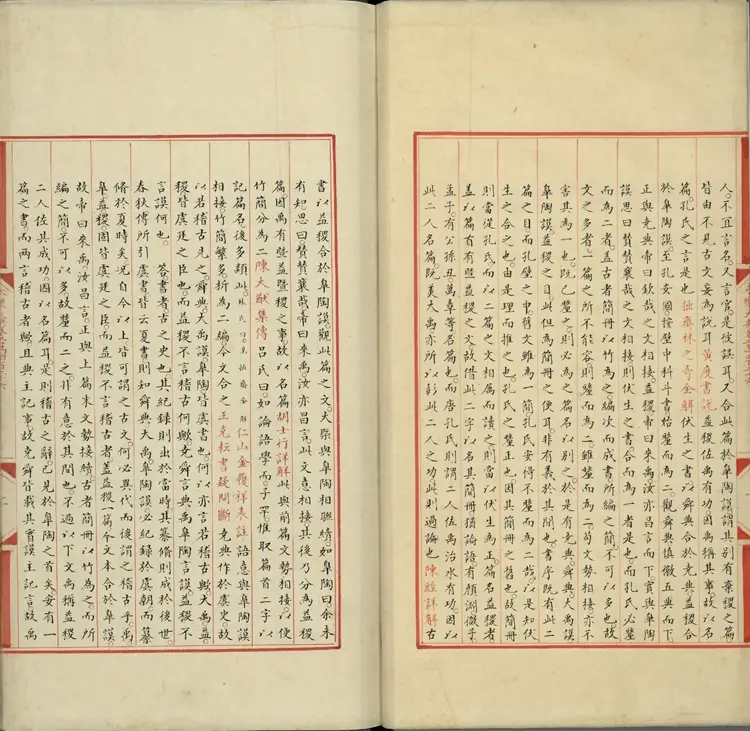 人。不宜言名。又言官。是彼誤耳。又合此篇於臯陶謨。謂其别有棄稷之篇
皆由不見古文妄為說耳 黄度書說 益稷佐禹有功。因禹稱其事。故以名
篇。孔氏之言是也 拙齋林之奇全解 伏生之書。以舜典合於堯典。益稷合
於臯陶謨。至孔安國按壁中科斗書始釐而為二。觀舜典慎徽五典而下。
正與堯典帝曰欽哉之文相接。益稷帝曰來禹汝亦昌言而下。實與臯陶
謨思曰贊贊襄哉之文相接則伏生之書。合而為一者是也。而孔氏必釐
而為二者。蓋古者簡冊以竹為之。編次而成書。所編之簡。不可以多也。故
文之多者。一篇之所不能容則釐而為二。雖釐而為二。苟文勢相接亦不
害其為一也。既已釐之。則必為之篇名以别之。於是有堯典。舜典。大禹謨
臯陶謨益稷之目。此但為簡冊之便耳。非有義於其間也。書序既有此二
篇之目。而孔壁之中。舊文雖為一簡。孔氏安得不釐而為二哉。以是知伏
生之合之也。由是理而推之也。孔氏之釐正也。因其簡冊之舊也。故簡冊
則當從孔氏。而以二篇之文相属而讀之。則當以伏生為正。篇名益稷者。
蓋以篇首有暨益暨稷之文。故借此二字以名其簡冊猶論語有顔淵微子。
孟子。有公孫丑萬章等名篇也。而唐孔氏則謂二人佐禹治水有功。因以
此二人名篇。既美大禹亦所以彰此二人之功。此則過論也 陳經詳解 古
書以益稷合於臯陶謨。觀此篇之文大槩與臯陶相聯續。如臯陶曰。余未
有知思曰贊贊襄哉。帝曰來禹汝亦昌言。此文意相接。其後乃分為益稷
篇。因禹有暨益暨稷之事。故以名篇 胡士行詳解 此與前篇文勢相接。以便
竹簡分為二 陳大猷集傳 吕氏曰。如論語學而。子罕。惟取篇首二字以
記篇名。後多類此。林氏曰見拙齋全解 仁山金履祥表註 語意與臯陶謨
相接竹簡繁多。折為二編今文合之 王充耘書疑問斷 堯典作於虞史。故
以若稽古見之。舜典大禹謨臯陶。皆虞書也。何以亦言若稽古歟。大禹。益。
稷。皆虞廷之臣也。而益稷不言稽古何歟。堯舜言典。禹臯陶言謨。益稷不
言謨何也。 答書者古之史也。其紀録則出於當時。其纂脩則成於後世。
春秋傳所引虞書皆云夏書則知舜典大禹臯陶謨。必紀録於虞朝而纂
脩於夏時矣。况自今以上。皆可謂之古文。何必異代而後謂之稽古乎。禹
臯益稷。固皆虞廷之臣。而益稷不言稽古者。蓋益稷一篇。今文本合於臯謨。
故帝曰來禹汝昌言。正與上篇末文勢接續。古者簡冊以竹為之。而所
編之簡不可以多。故釐而二之。非有意於其間也。不過以下文禹稱益稷
二人佐其成功。因以名篇耳。是則稽古之辭。已見於臯陶之首矣。安有一
篇之書。而兩言稽古者歟。且典主記事。故堯舜皆載其實。謨主記言。故禹